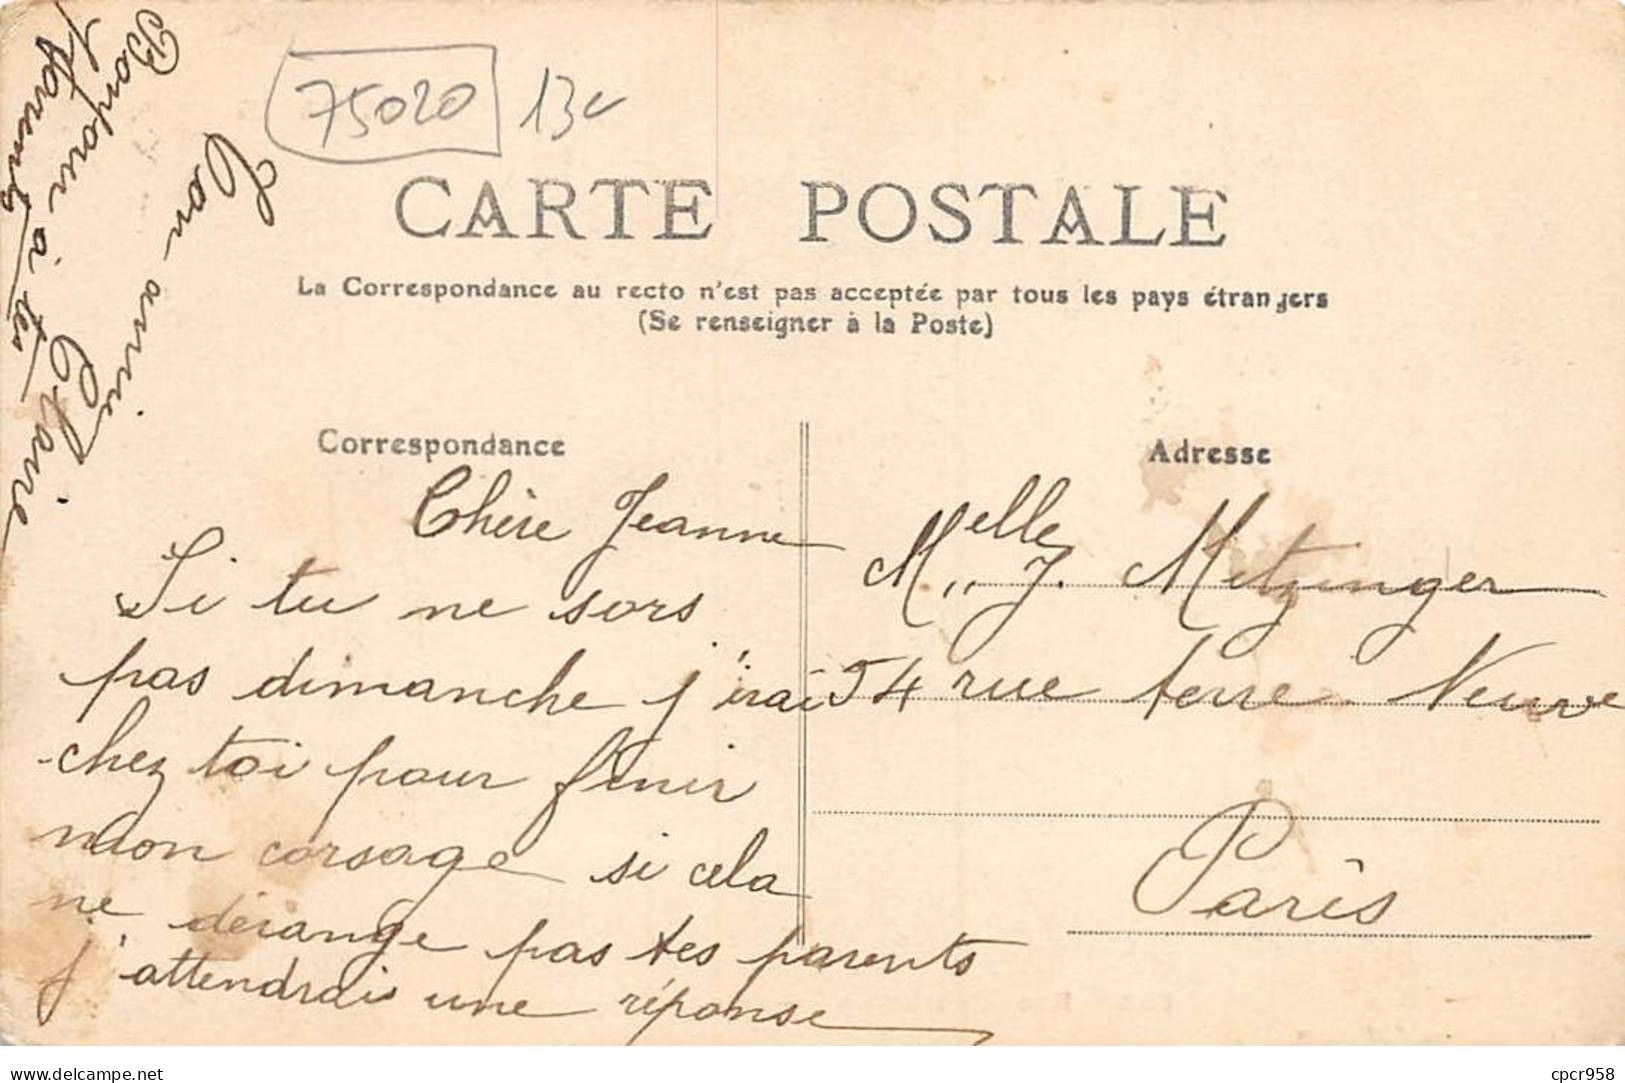 75020 13
CARTE POSTALE
La Correspondance au recto n'est pas acceptée par tous les pays étrangers
(Se renseigner à la Poste)
Correspondance
Chère Jeanne
Si tu ne sors
pas dimanche j'irai
chez toi pour finir
mon corsage si cela
ne dérange pas tes parents
j'attendrai une réponse
Ton amie
Claire
Bonjour à tes
parents
Adresse
Melle J. Metzinger
54 rue terre Neuve
Paris
delcampe.net
cpcr958